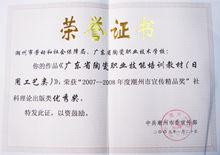 荣誉证书
潮州市劳动和社会保障局、广东省陶瓷职业技术学校：
你的作品《广东省陶瓷职业技能培训教材（日
用工艺类）》，荣获“2007—2008年度潮州市宣传精品奖”社
科理论出版类优秀奖。
特发此证，以资鼓励。
中共潮州市委宣传部
二〇〇九年